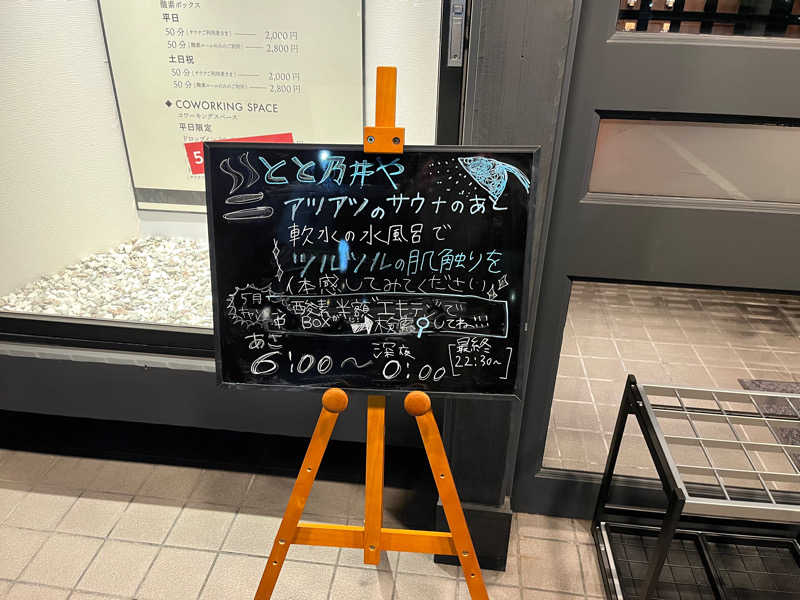 酸素ボックス
平日
50分(サウナご利用者さま) 2,000円
50分(酸素ルームのみのご利用) 2,800円
土日祝
50分(サウナご利用者さま) 2,000円
50分(酸素ルームのみのご利用) 2,800円
◆ COWORKING SPACE
コワーキングスペース
平日限定
ドロップイン
5
とと乃井や
アツアツのサウナのあと
軟水の水風呂で
ツルツルの肌触りを
体感してみてください
5月
キャンペーン中 酸素BOXが半額 エキテンで
検索してね!!!
あさ 深夜 最終
6:00〜 0:00 [22:30〜]